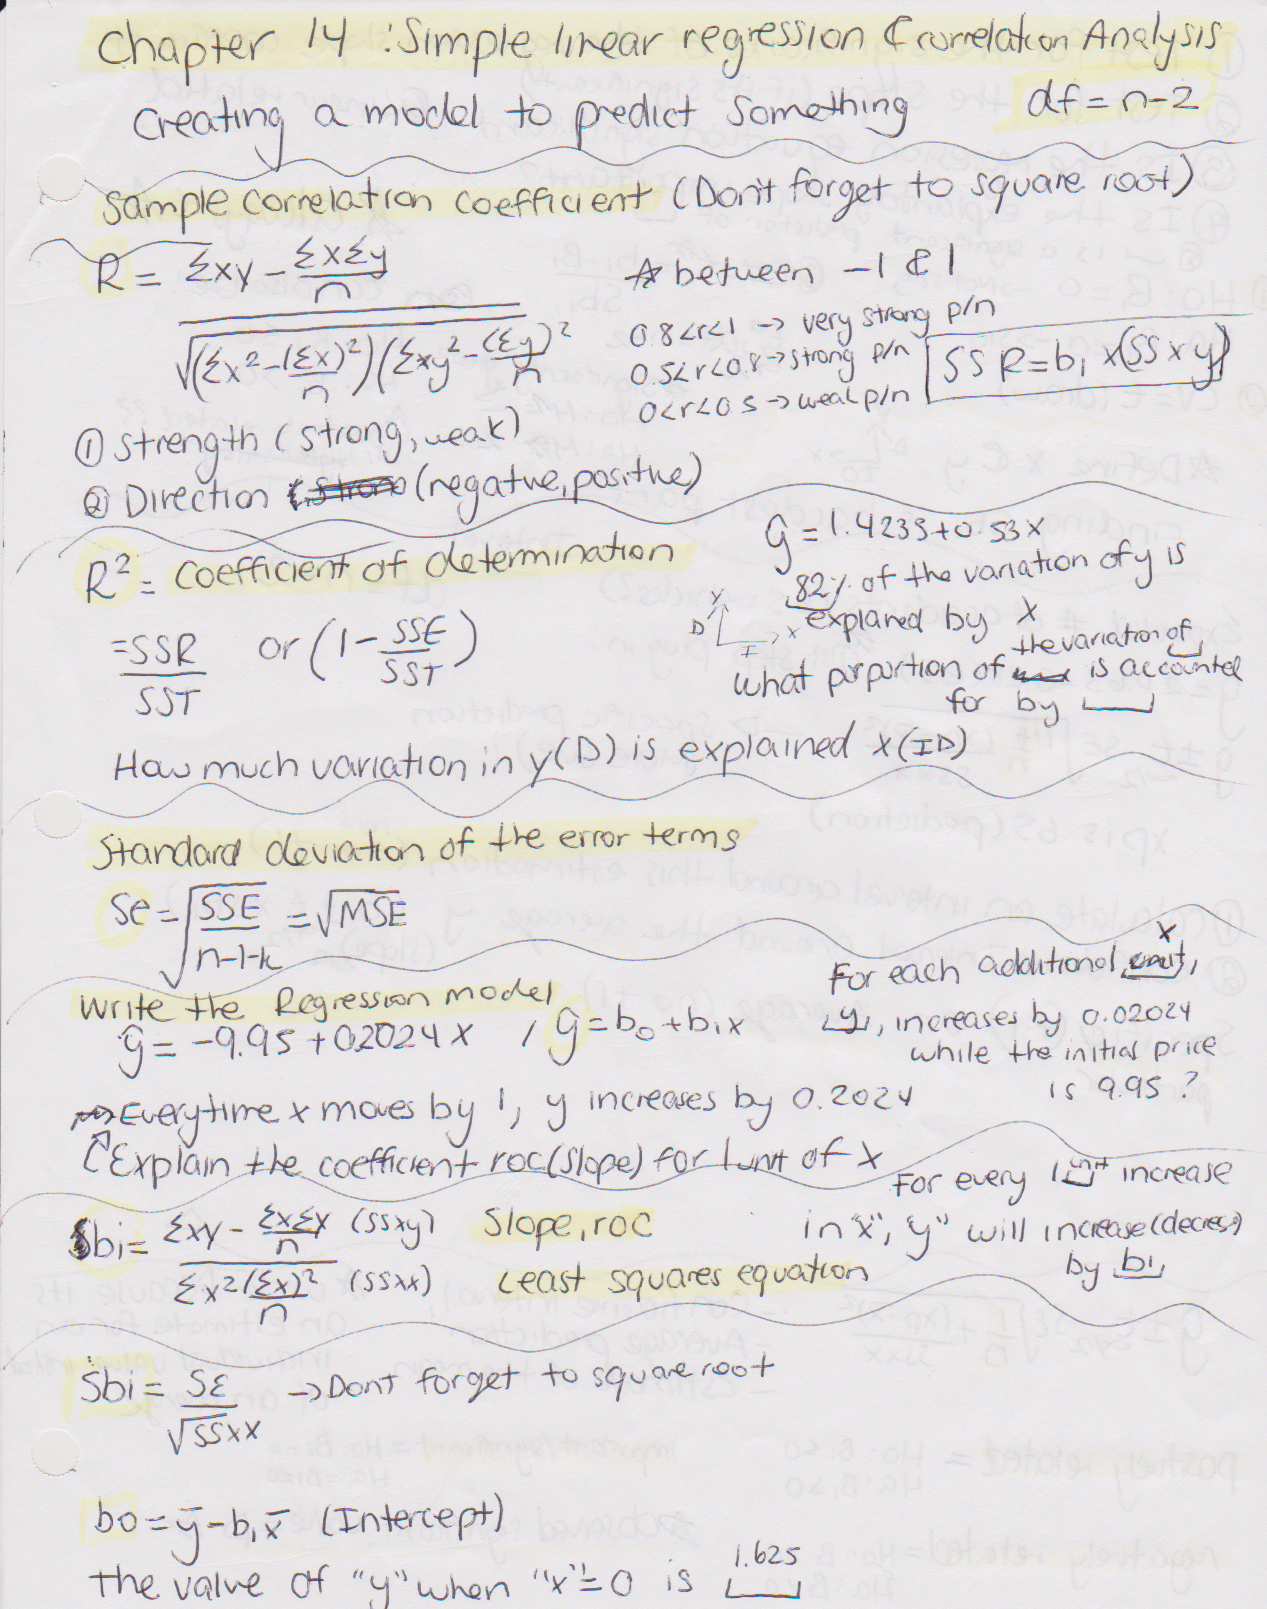 Chapter 14 : Simple linear regression & correlation Analysis
Creating a model to predict something df = n-2
Sample correlation coefficient (Don't forget to square root)
R = Σxy - ΣxΣy/n
√(Σx² - (Σx)²/n)(Σxy² - (Σy)²/n)
☆ between -1 & 1
0.8<r<1 → very strong p/n
0.5<r<0.8 → strong p/n
0<r<0.5 → weak p/n
SSR = b₁ x(SSxy)
① Strength (strong, weak)
② Direction (negative, positive)
R² = Coefficient of determination
= SSR/SST or (1 - SSE/SST)
ŷ = 1.4235 + 0.53x
82% of the variation of y is
explaned by x
y
D
x
I
the variation of
What porportion of is accounted
for by
How much variation in y(D) is explained x(ID)
Standard deviation of the error terms
Se = √SSE/n-1-k = √MSE
Write the Regression model
ŷ = -9.95 + 02024x / ŷ = b₀ + b₁x
x
For each additional unit,
y, increases by 0.02024
while the initial price
is 9.95 ?
Everytime x moves by 1, y increases by 0.2024
Explain the coefficient roc (slope) for 1 unit of x
For every 1 unit increase
in "x", "y" will increase (decres)
by b₁
bi = Σxy - ΣxΣy/n (SSxy) Slope, roc
Σx² (Σx)²/n (SSxx) Least squares equation
Sbi = SE/√SSxx → Dont forget to square root
bo = ȳ - b₁x̄ (Intercept)
1.625
The value of "y" when "x" = 0 is